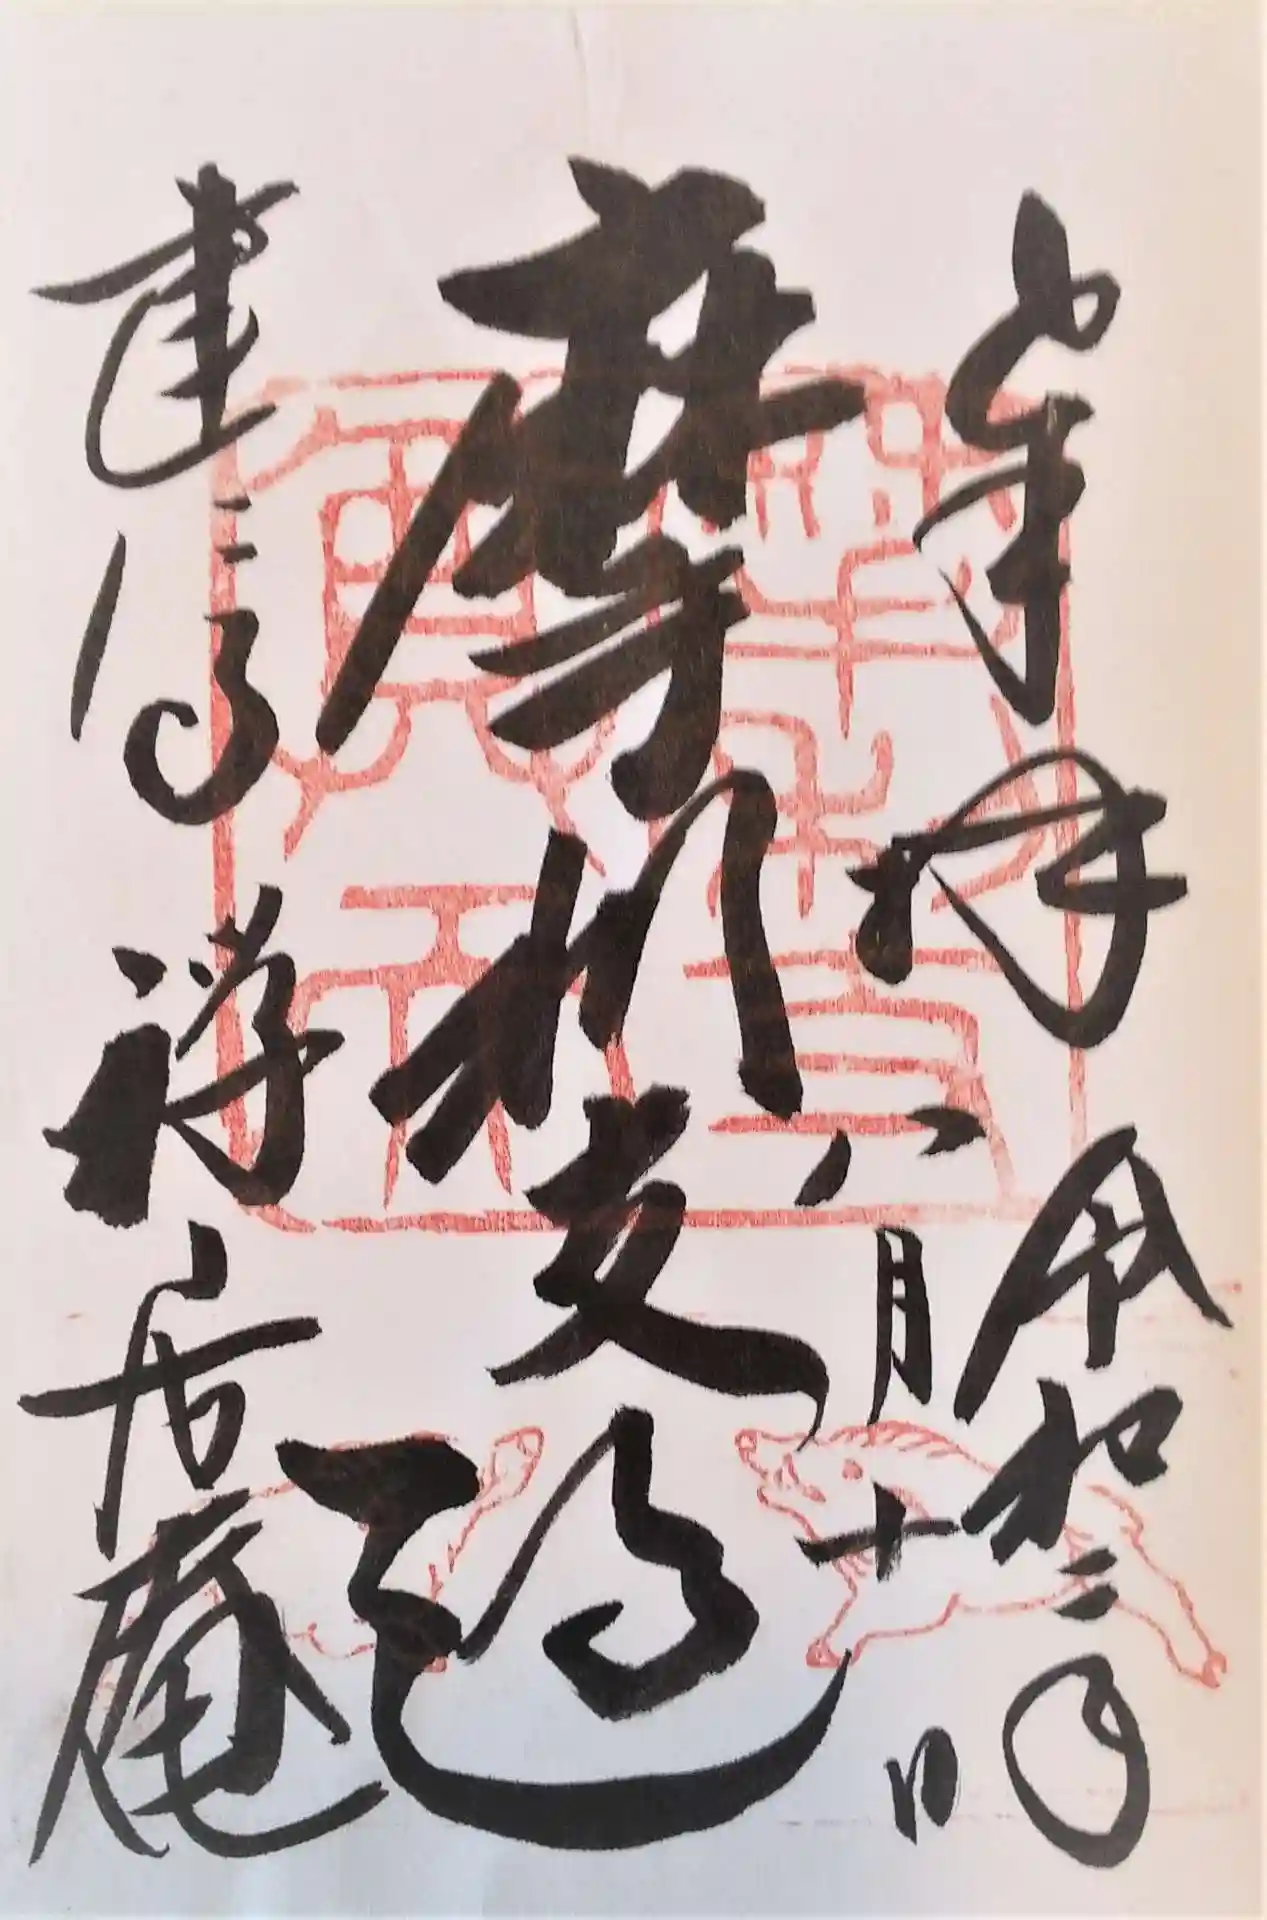 奉拝 令和三年
八月十日
摩利支
建仁寺 禅居庵